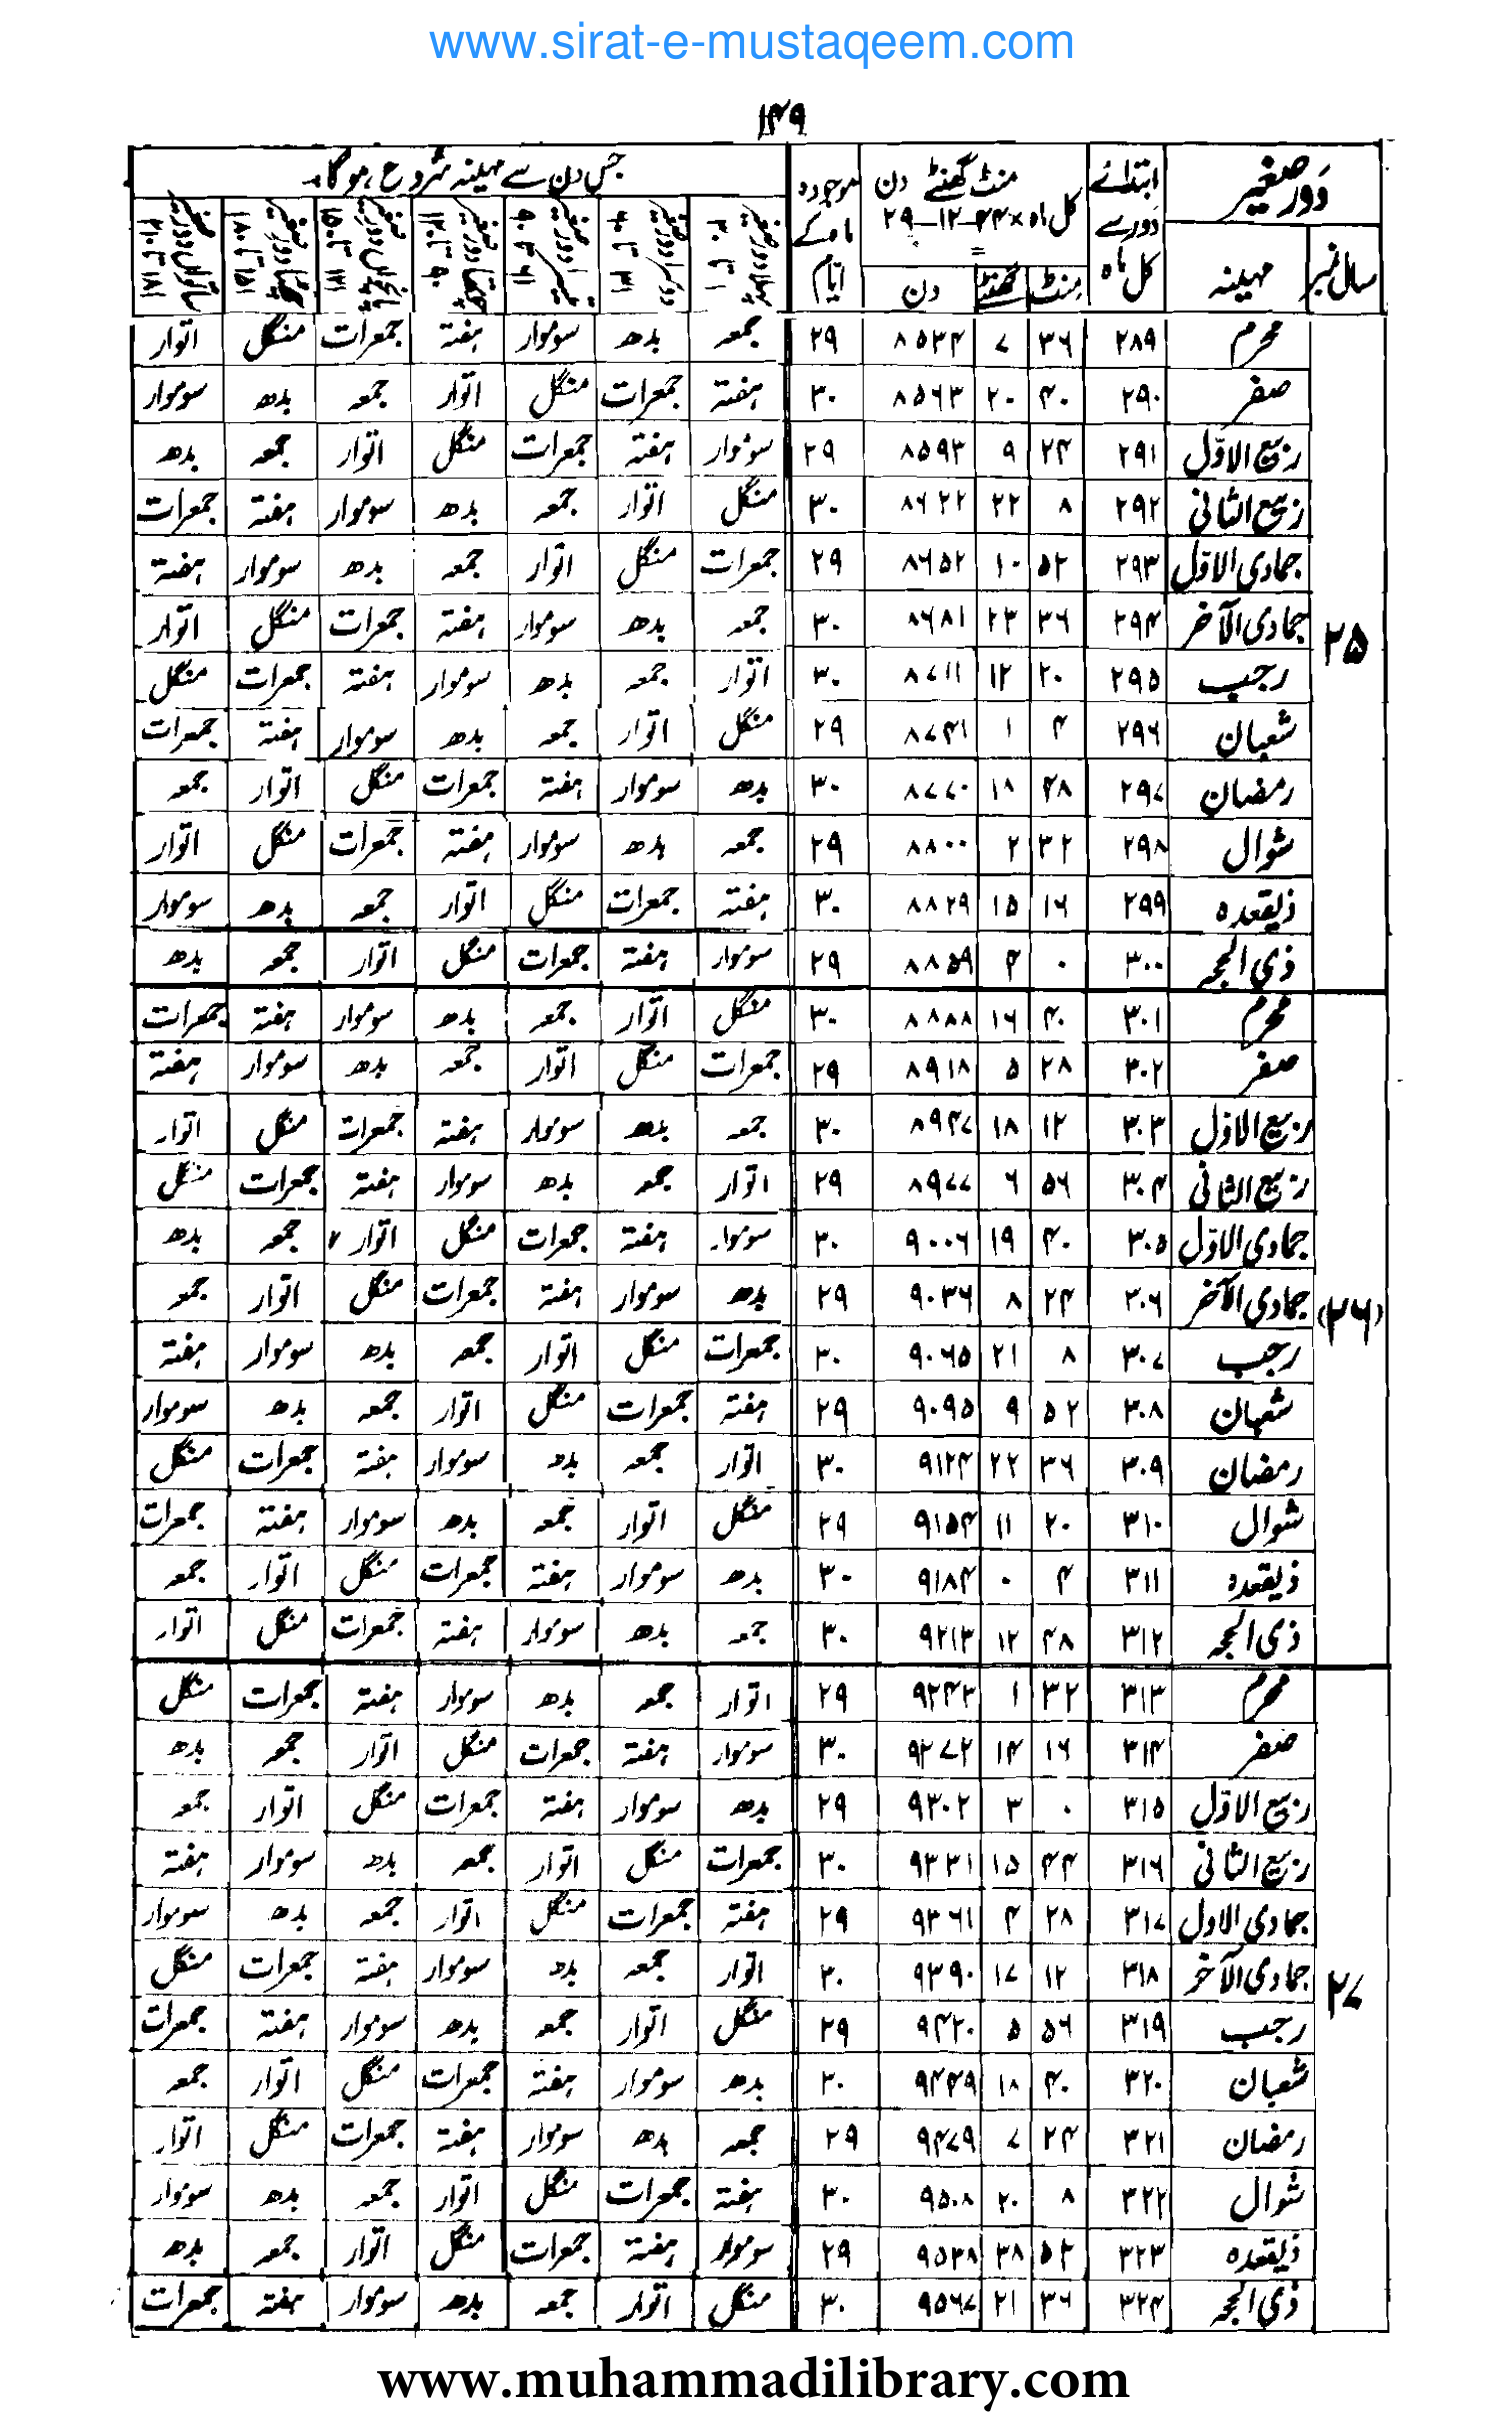 www.sirat-e-mustaqeem.com
۱۴۹
دَورِ صغیر
ابتدائے دَور سے کل ماہ
منٹ گھنٹے دن
کل ماہ × ۴۴–۱۲–۲۹
=
موجودہ ماہ کے ایّام
جس دن سے مہینہ شروع ہوگا۔
سال نمبر مہینہ منٹ گھنٹے دن
پہلا دور صغیر ۱ تا ۳۰
دوسرا دور صغیر ۳۱ تا ۶۰
تیسرا دور صغیر ۶۱ تا ۹۰
چوتھا دور صغیر ۹۱ تا ۱۲۰
پانچواں دور صغیر ۱۲۱ تا ۱۵۰
چھٹا دور صغیر ۱۵۱ تا ۱۸۰
ساتواں دور صغیر ۱۸۱ تا ۲۱۰
۲۵
محرم ۲۸۹ ۳۶ ۷ ۸۵۳۴ ۲۹ جمعہ بدھ سوموار ہفتہ جمعرات منگل اتوار
صفر ۲۹۰ ۴۰ ۲۰ ۸۵۶۳ ۳۰ ہفتہ جمعرات منگل اتوار جمعہ بدھ سوموار
ربیع الاوّل ۲۹۱ ۲۴ ۹ ۸۵۹۳ ۲۹ سوموار ہفتہ جمعرات منگل اتوار جمعہ بدھ
ربیع الثانی ۲۹۲ ۸ ۲۲ ۸۶۲۲ ۳۰ منگل اتوار جمعہ بدھ سوموار ہفتہ جمعرات
جمادی الاوّل ۲۹۳ ۵۲ ۱۰ ۸۶۵۲ ۲۹ جمعرات منگل اتوار جمعہ بدھ سوموار ہفتہ
جمادی الآخر ۲۹۴ ۳۶ ۲۳ ۸۶۸۱ ۳۰ جمعہ بدھ سوموار ہفتہ جمعرات منگل اتوار
رجب ۲۹۵ ۲۰ ۱۲ ۸۷۱۱ ۳۰ اتوار جمعہ بدھ سوموار ہفتہ جمعرات منگل
شعبان ۲۹۶ ۴ ۱ ۸۷۴۱ ۲۹ منگل اتوار جمعہ بدھ سوموار ہفتہ جمعرات
رمضان ۲۹۷ ۴۸ ۱۸ ۸۷۷۰ ۳۰ بدھ سوموار ہفتہ جمعرات منگل اتوار جمعہ
شوال ۲۹۸ ۳۲ ۲ ۸۸۰۰ ۲۹ جمعہ بدھ سوموار ہفتہ جمعرات منگل اتوار
ذیقعدہ ۲۹۹ ۱۶ ۱۵ ۸۸۲۹ ۳۰ ہفتہ جمعرات منگل اتوار جمعہ بدھ سوموار
ذی الحجہ ۳۰۰ ۰ ۴ ۸۸۵۹ ۲۹ سوموار ہفتہ جمعرات منگل اتوار جمعہ بدھ
(۲۶)
محرم ۳۰۱ ۴۰ ۱۶ ۸۸۸۸ ۳۰ منگل اتوار جمعہ بدھ سوموار ہفتہ جمعرات
صفر ۳۰۲ ۲۸ ۵ ۸۹۱۸ ۲۹ جمعرات منگل اتوار جمعہ بدھ سوموار ہفتہ
ربیع الاوّل ۳۰۳ ۱۲ ۱۸ ۸۹۴۷ ۳۰ جمعہ بدھ سوموار ہفتہ جمعرات منگل اتوار
ربیع الثانی ۳۰۴ ۵۶ ۶ ۸۹۷۷ ۲۹ اتوار جمعہ بدھ سوموار ہفتہ جمعرات منگل
جمادی الاوّل ۳۰۵ ۴۰ ۱۹ ۹۰۰۶ ۳۰ سوموار ہفتہ جمعرات منگل اتوار جمعہ بدھ
جمادی الآخر ۳۰۶ ۲۴ ۸ ۹۰۳۶ ۲۹ بدھ سوموار ہفتہ جمعرات منگل اتوار جمعہ
رجب ۳۰۷ ۸ ۲۱ ۹۰۶۵ ۳۰ جمعرات منگل اتوار جمعہ بدھ سوموار ہفتہ
شعبان ۳۰۸ ۵۲ ۹ ۹۰۹۵ ۲۹ ہفتہ جمعرات منگل اتوار جمعہ بدھ سوموار
رمضان ۳۰۹ ۳۶ ۲۲ ۹۱۲۴ ۳۰ اتوار جمعہ بدھ سوموار ہفتہ جمعرات منگل
شوال ۳۱۰ ۲۰ ۱۱ ۹۱۵۴ ۲۹ منگل اتوار جمعہ بدھ سوموار ہفتہ جمعرات
ذیقعدہ ۳۱۱ ۴ ۰ ۹۱۸۴ ۳۰ بدھ سوموار ہفتہ جمعرات منگل اتوار جمعہ
ذی الحجہ ۳۱۲ ۴۸ ۱۲ ۹۲۱۳ ۳۰ جمعہ بدھ سوموار ہفتہ جمعرات منگل اتوار
۲۷
محرم ۳۱۳ ۳۲ ۱ ۹۲۴۳ ۲۹ اتوار جمعہ بدھ سوموار ہفتہ جمعرات منگل
صفر ۳۱۴ ۱۶ ۱۴ ۹۲۷۲ ۳۰ سوموار ہفتہ جمعرات منگل اتوار جمعہ بدھ
ربیع الاوّل ۳۱۵ ۰ ۳ ۹۳۰۲ ۲۹ بدھ سوموار ہفتہ جمعرات منگل اتوار جمعہ
ربیع الثانی ۳۱۶ ۴۴ ۱۵ ۹۳۳۱ ۳۰ جمعرات منگل اتوار جمعہ بدھ سوموار ہفتہ
جمادی الاول ۳۱۷ ۲۸ ۴ ۹۳۶۱ ۲۹ ہفتہ جمعرات منگل اتوار جمعہ بدھ سوموار
جمادی الآخر ۳۱۸ ۱۲ ۱۷ ۹۳۹۰ ۳۰ اتوار جمعہ بدھ سوموار ہفتہ جمعرات منگل
رجب ۳۱۹ ۵۶ ۵ ۹۴۲۰ ۲۹ منگل اتوار جمعہ بدھ سوموار ہفتہ جمعرات
شعبان ۳۲۰ ۴۰ ۱۸ ۹۴۴۹ ۳۰ بدھ سوموار ہفتہ جمعرات منگل اتوار جمعہ
رمضان ۳۲۱ ۲۴ ۷ ۹۴۷۹ ۲۹ جمعہ بدھ سوموار ہفتہ جمعرات منگل اتوار
شوال ۳۲۲ ۸ ۲۰ ۹۵۰۸ ۳۰ ہفتہ جمعرات منگل اتوار جمعہ بدھ سوموار
ذیقعدہ ۳۲۳ ۵۲ ۳۸ ۹۵۳۸ ۲۹ سوموار ہفتہ جمعرات منگل اتوار جمعہ بدھ
ذی الحجہ ۳۲۴ ۳۶ ۲۱ ۹۵۶۷ ۳۰ منگل اتوار جمعہ بدھ سوموار ہفتہ جمعرات
www.muhammadilibrary.com